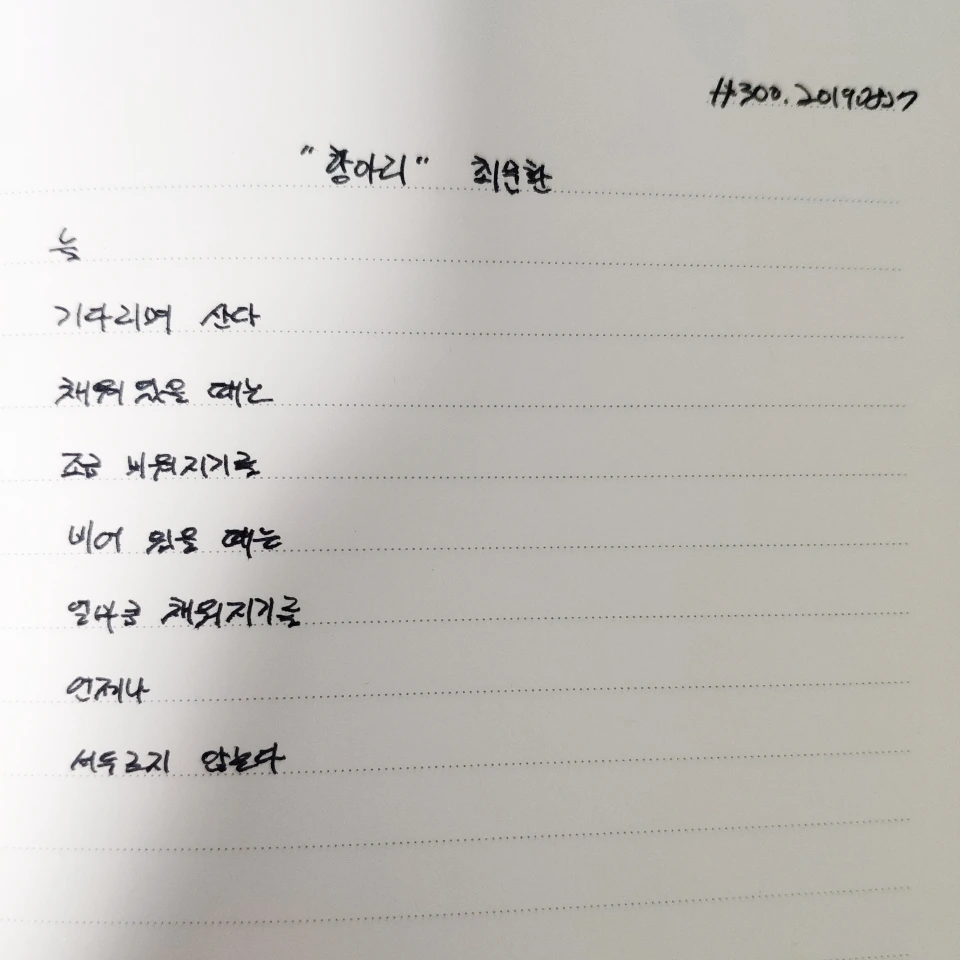 #300. 20190527
"항아리" 최윤환
늘
기다리며 산다
채워 있을 때는
조금 비워지기를
비어 있을 때는
얼마큼 채워지기를
언제나
서두르지 않는다